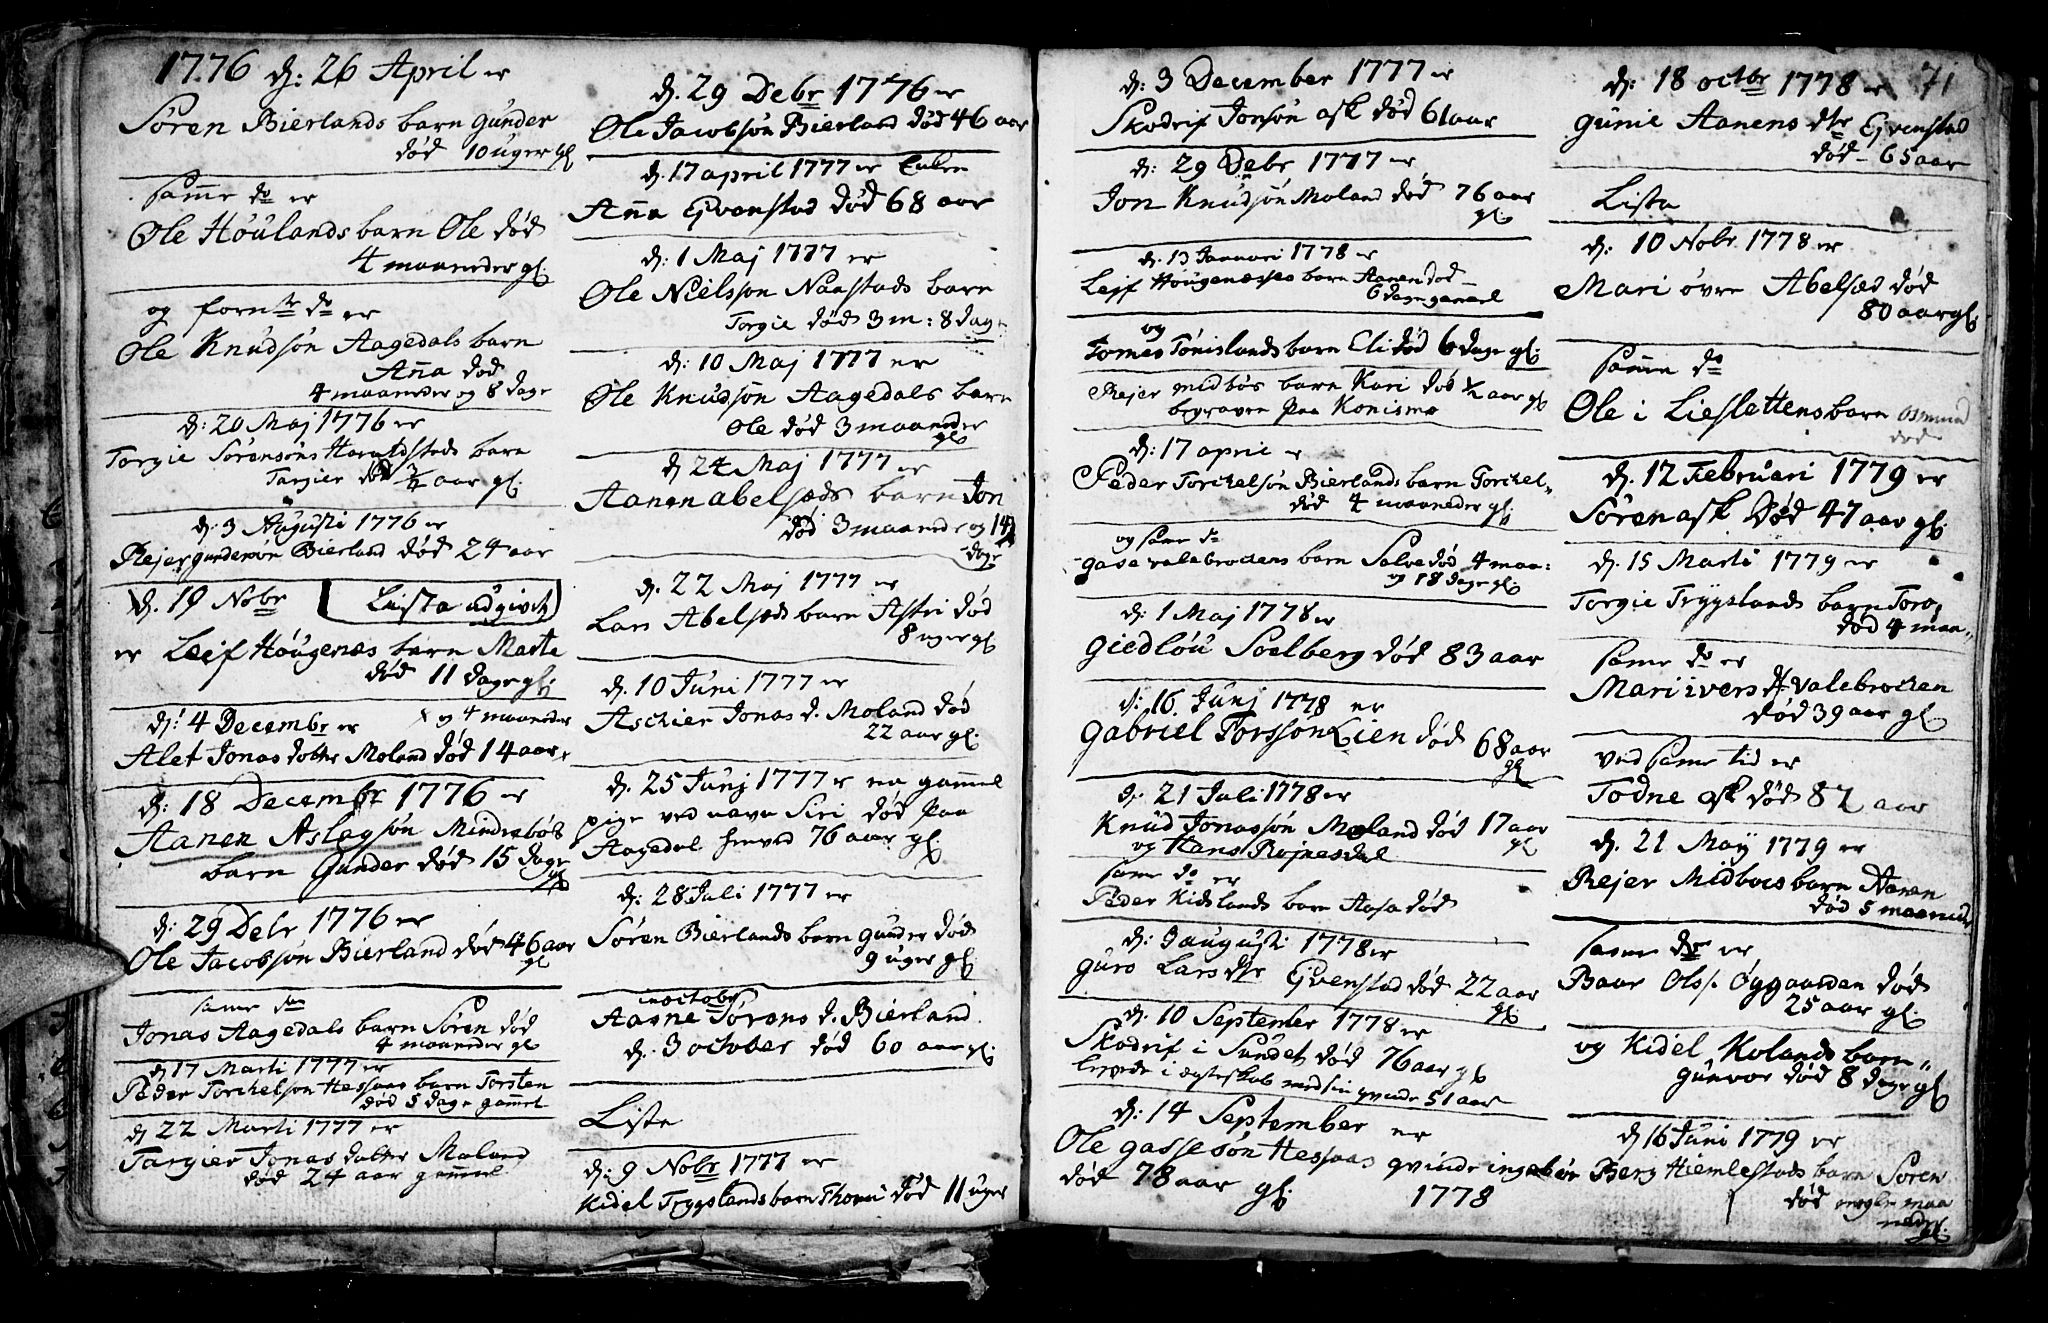 1776 d: 26 April er
Sören Bierlands barn Gunder
död 10 uger gl
samme do er
Ole Höulands barn Ole död
4 maaneder gl.
og fornte do er
Ole Knudsön Aagedals barn
Anna död
4 maaneder og 8 dage
d: 20 Maj 1776 er
Torgie Sörensöns barn
Targier död 3/4 aar gl.
d. 3 Augusti 1776 er
Rejer gundersön Bierland död 24 aar
d. 19 Nobr Lista udgivet
er Leif Höugenæs barn Marte
död 11 dage gl.
d: 4 Decembr er x og 4 maaneder
Alet Jonas dotter Moland död 14 aar x
d: 18 Decembr 1776 er
Aanen Aslagsön Mindrebös
barn Gunder död 15 dage
gl
d: 29 Debr 1776 er
Ole Jacobsön Bierland död 46 aar
gl
same do
Jonas Aagedals barn Sören död
4 maaneder gl
d 17 Marti 1777 er
Peder Torchelson Hessaas barn Torsten
död 5 dage gammel
d 22 Marti 1777 er
Targier Jonas datter Moland
död 24 aar gammel
d. 29 Debr 1776 er
Ole Jacobsön Bierland död 46 aar
d. 17 april 1777 er Enken
Anna Qvenstad död 68 aar
d: 1 Maj 1777 er
Ole Nielsson Naastads barn
Torgie död 3 m: 8 dage
d: 10 Maj 1777 er
Ole Knudsön Aagedals barn
Ole död 3 maaneder
gl
d 24 Maj 1777 er
Aanen abelsæds barn Jon
död 3 maaneder og 14
dage
d. 22 Maj 1777 er
Lars Abelsæds barn Astri död
8 uger gl
d. 10 Juni 1777 er
Aschier Jonas d. Moland död
22 aar gl.
d. 25 Junj 1777 er en gammel
pige ved navn Siri död paa
Aagedal henved 76 aar gl
d: 28 Juli 1777 er
Sören Bierlands barn Gunder död
9 uger gl.
in octobr
Aasne Sörens d. Bierland
d. 3 october död 60 aar gl.
Lista
d: 9 Nobr 1777 er
Kidel Tryglands barn Thomi död 11 uger
d: 3 December 1777 er
Skodrif Jonsön ask död 61 aar
d: 29 Debr 1777 er
Jon Knudsön Moland död 76 aar
gl.
d. 13 Januari 1778 er
Leif Höugenæsses barn Aanen död
6 dage gamel
og
Tomes Tönislands barn Eli död 6 dage gl.
Rejer midbös barn Kari död 1/2 aar gl
begraven paa Konismo
d: 17 april er
Peder Torchelsön Bierlands barn Torchel
död 4 maaneder gl.
og same do
gase valebrodens barn Salve död 4 maa:
og 18 dage gl.
d: 1 Maj 1778 er
Giedlöu Soelberg död 83 aar
d: 16 Junj 1778 er
Gabriel Torssön Lien död 68 aar
gl
d. 21 Juli 1778 er
Knud Jonassön Moland död 17 aar
gl
og Hans Röjnesdal
same do er
Peder Kidslands barn Aasa död
d: 3 augusti 1778 er
Guro Lars dtr Qvenstad död 22 aar
gl.
d. 10 September 1778 er
Skodrif i Sundet död 76 aar gl
levede i ægteskab med sin qvinde 51 aar
d: 14 September er
Ole Gassesön Hessaas qvinde ingebör
död 78 aar gl. 1778
71
d: 18 octbr 1778 er
Gunie Aanens dtr Qvenstad
död 65 aar
Lista
d: 10 Nobr 1778 er
Mari övre Abelsæd död
80 aar gl.
samme do
Ole i Lieslettens barn osmund
död
d. 12 Februari 1779 er
Sören ask död 47 aar gl.
d. 15 Marti 1779 er
Torgie Tryglands barn Toro
död 4 maa
same do er
Mari ivers d Valebroden
död 39 aar gl.
ved same tid er
Todne ask död 82 aar
d. 21 Maÿ 1779 er
Rejer Midboes barn Aanen
död 5 maaneder
same do er
Baar Ols. Öygaarden död
25 aar gl.
og Kidel Kolands barn
gunvor död 8 dage gl
d 16 Juni 1779 er
Berg Hiemlestads barn Sören
död nogle maa
neder
gl.